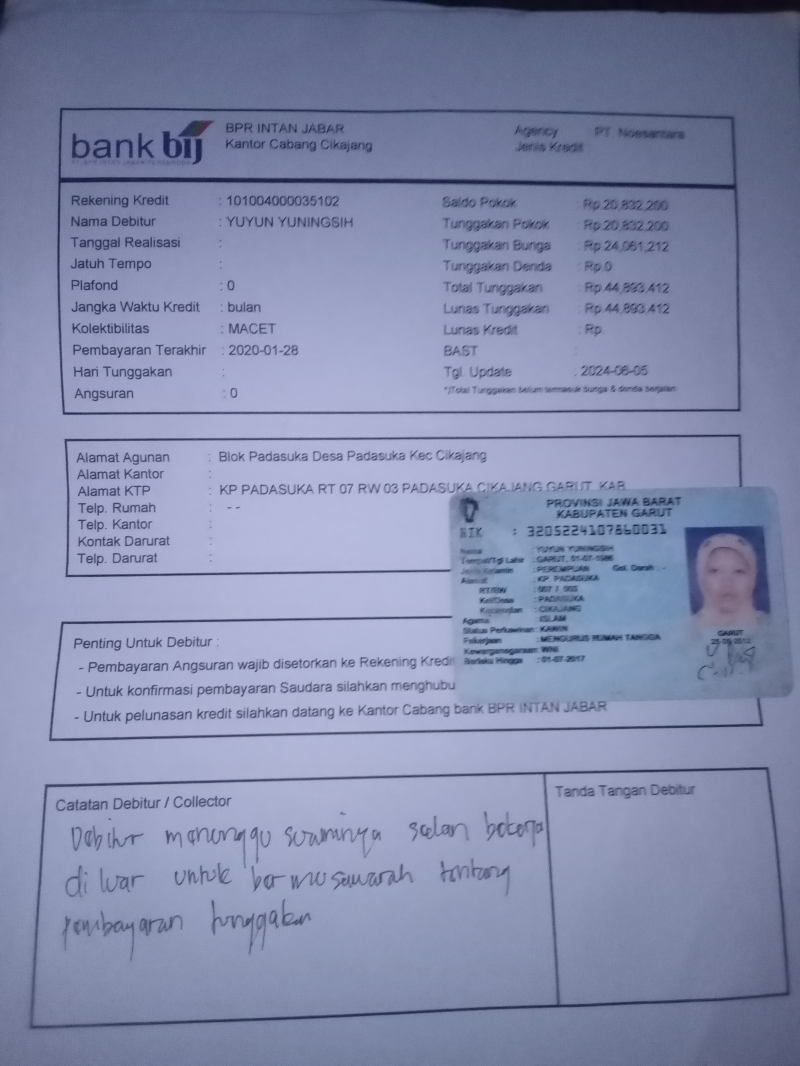 bank bij
BPR INTAN JABAR
Kantor Cabang Cikajang
Agency PT. Noesantara
Jenis Kredit
Rekening Kredit : 101004000035102
Nama Debitur : YUYUN YUNINGSIH
Tanggal Realisasi :
Jatuh Tempo :
Plafond : 0
Jangka Waktu Kredit : bulan
Kolektibilitas : MACET
Pembayaran Terakhir : 2020-01-28
Hari Tunggakan :
Angsuran : 0
Saldo Pokok : Rp 20,832,200
Tunggakan Pokok : Rp 20,832,200
Tunggakan Bunga : Rp 24,061,212
Tunggakan Denda : Rp 0
Total Tunggakan : Rp 44,893,412
Lunas Tunggakan : Rp 44,893,412
Lunas Kredit : Rp
BAST :
Tgl. Update : 2024-06-05
*)Total Tunggakan belum termasuk bunga & denda berjalan
Alamat Agunan : Blok Padasuka Desa Padasuka Kec Cikajang
Alamat Kantor :
Alamat KTP : KP PADASUKA RT 07 RW 03 PADASUKA CIKAJANG GARUT, KAB
Telp. Rumah : - -
Telp. Kantor :
Kontak Darurat :
Telp. Darurat :
PROVINSI JAWA BARAT
KABUPATEN GARUT
NIK : 3205224107860031
Nama : YUYUN YUNINGSIH
Tempat/Tgl Lahir : GARUT, 01-07-1986
Jenis Kelamin : PEREMPUAN Gol. Darah : -
Alamat : KP. PADASUKA
RT/RW : 007 / 003
Kel/Desa : PADASUKA
Kecamatan : CIKAJANG
Agama : ISLAM
Status Perkawinan : KAWIN
Pekerjaan : MENGURUS RUMAH TANGGA
Kewarganegaraan : WNI
Berlaku Hingga : 01-07-2017
GARUT
Penting Untuk Debitur :
- Pembayaran Angsuran wajib disetorkan ke Rekening Kredi
- Untuk konfirmasi pembayaran Saudara silahkan menghubu
- Untuk pelunasan kredit silahkan datang ke Kantor Cabang bank BPR INTAN JABAR
Catatan Debitur / Collector
Debitur menunggu suaminya bekerja
di luar untuk bermusawarah tentang
pembayaran tunggakan
Tanda Tangan Debitur